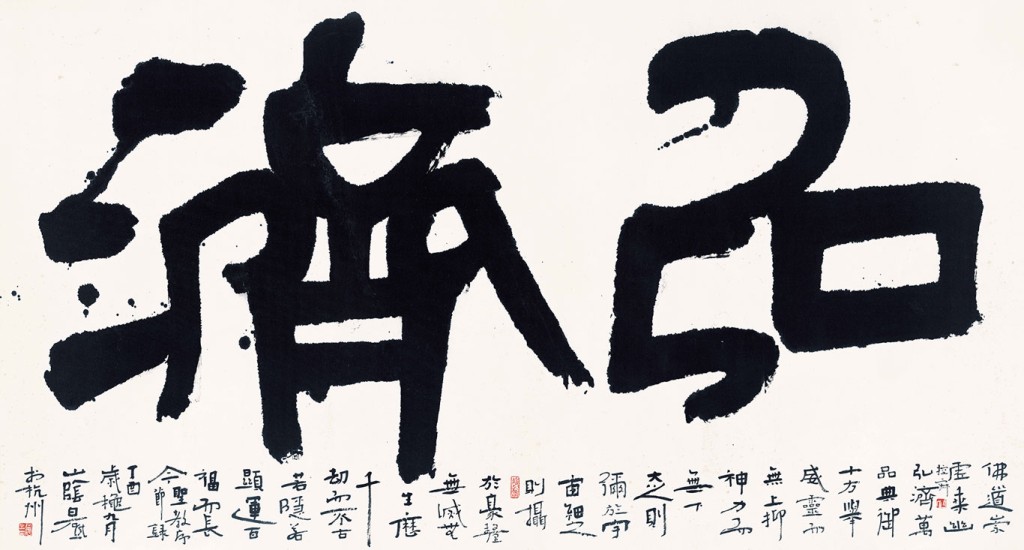 弘濟
佛道崇
虛乘幽
控寂
弘濟萬
品典御
十方舉
威靈而
無上抑
神力而
無下
大之則
彌於宇
宙細之
則攝
於毫釐
無滅無
生歷
千
劫而不古
若隱若
顯運百
福而長
今聖教序
節錄
丁酉
歲極月
山陰
於杭州